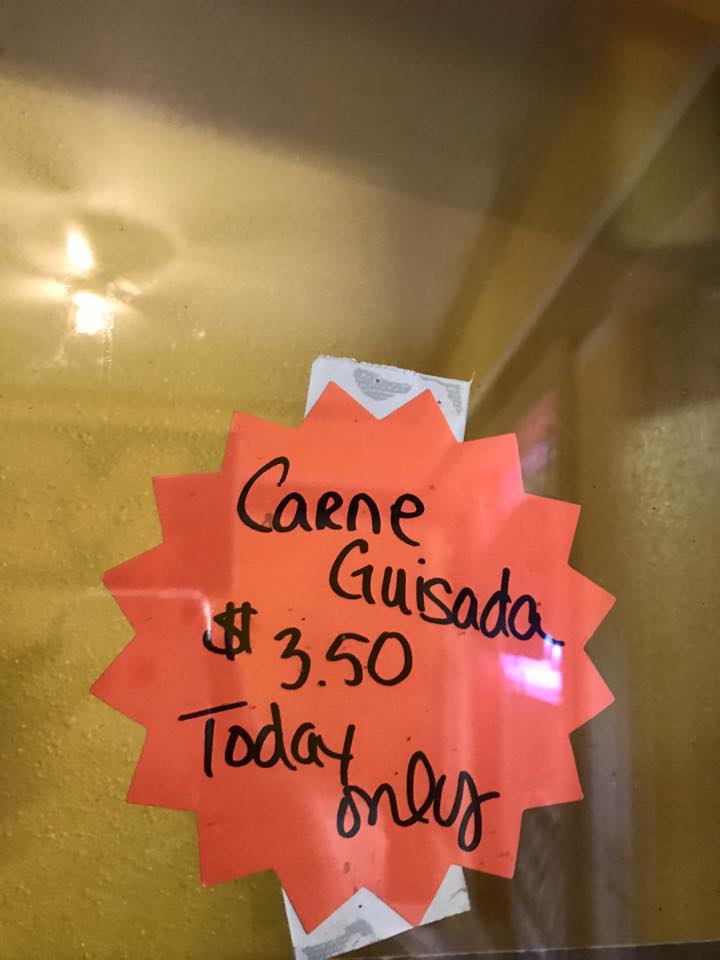 Carne
Guisada
$3.50
Today
only